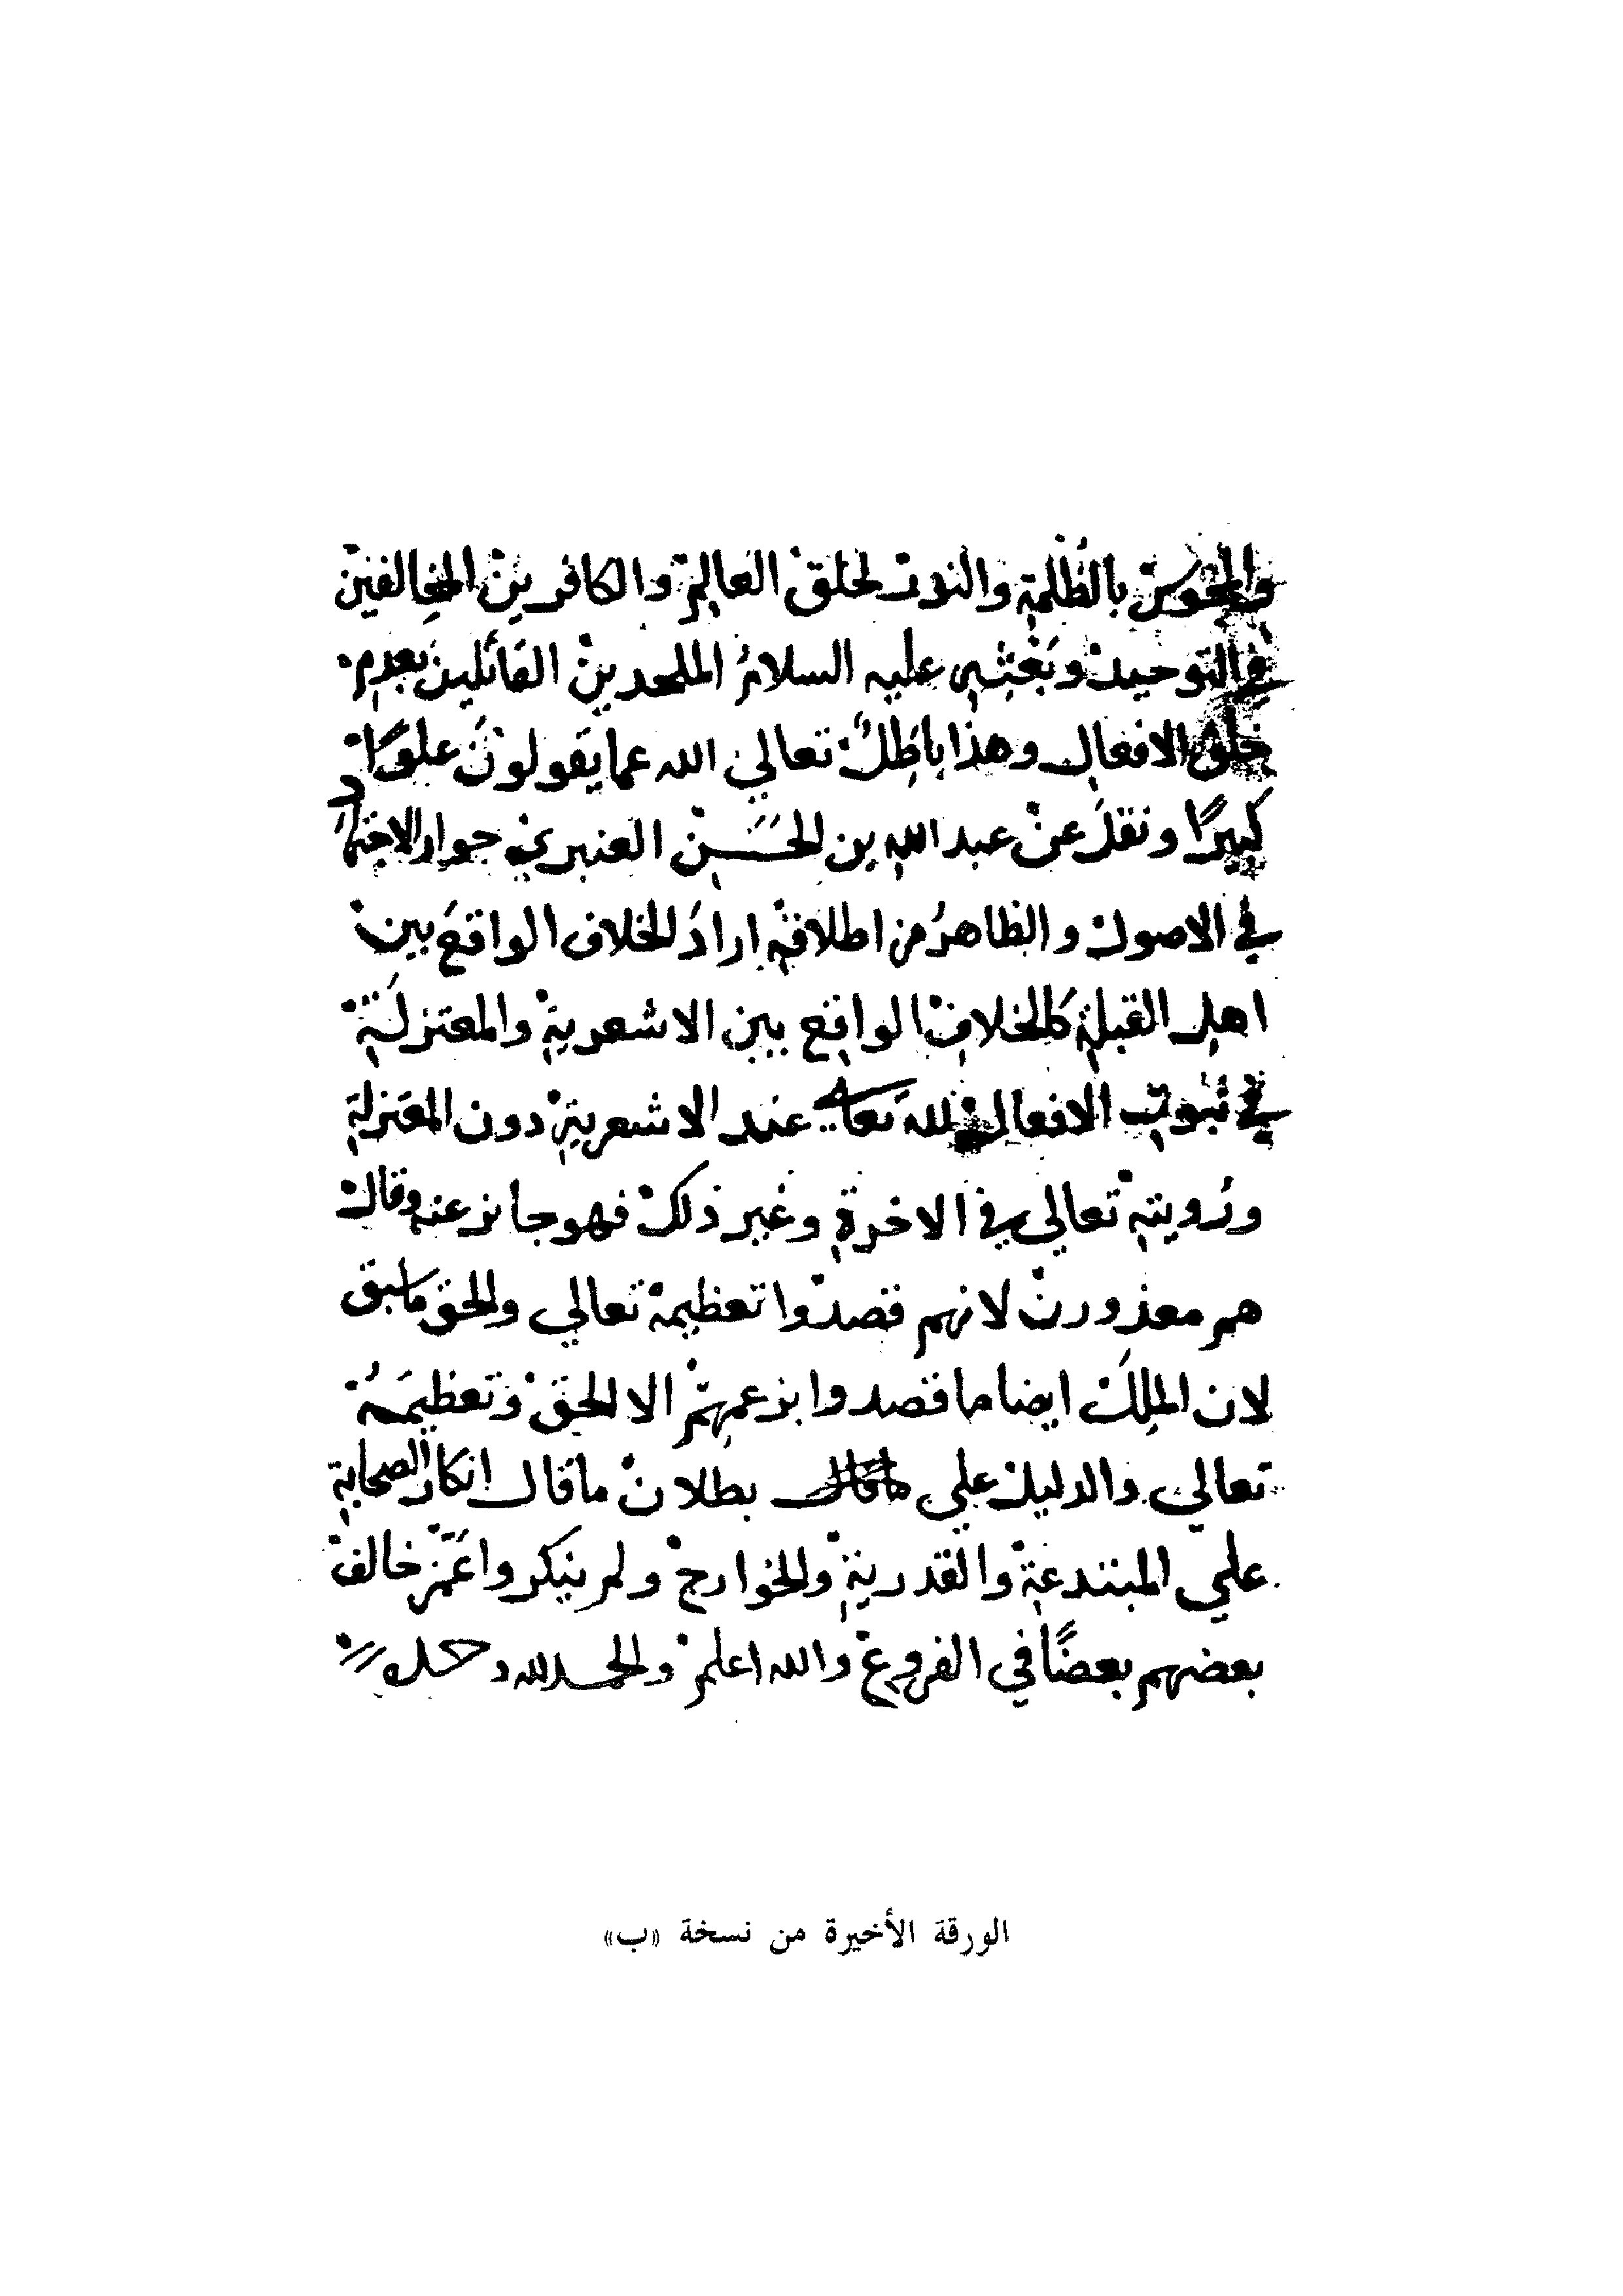 والمجوس بالظُلمةِ والنور لخلق العالمِ والكافرين المخالفين
في التوحيد وبَعْثِهِ عليه السلامُ الملحدين القائلين بعدمِ
خلق الافعال وهذا باطِلٌ تعالي الله عما يقولون علوًا
كبيرًا ونقلَ عن عبد اللهِ بن الحَسَن العنبري جواز الاجتهاد
في الاصول والظاهرُ من اطلاقهِ ارادَ الخلاف الواقعَ بين
اهلِ القبلةِ كالخلافِ الواقِعِ بين الاشعريةِ والمعتزلَةِ
في ثبوتِ الافعال لله تعالي عند الاشعريةِ دون المعتزلةِ
ورُويتهِ تعالي في الاخرةِ وغير ذلك فهو جايز عنه وقال
هم معذورن لانهم قصدوا تعظيمة تعالي والحق ما سبق
لان المِللَ ايضا ما قصدوا بزعمِهِمْ الا الحقَ وتعظيمَهُ
تعالي والدليل علي بطلان ما قال انكار الصحابةِ
علي المبتدعةِ والقدريةِ والخوارج ولم ينكروا عَمّن خالف
بعضهم بعضًا في الفروعِ والله اعلم والحمد لله وحده
الورقة الأخيرة من نسخة «ب»